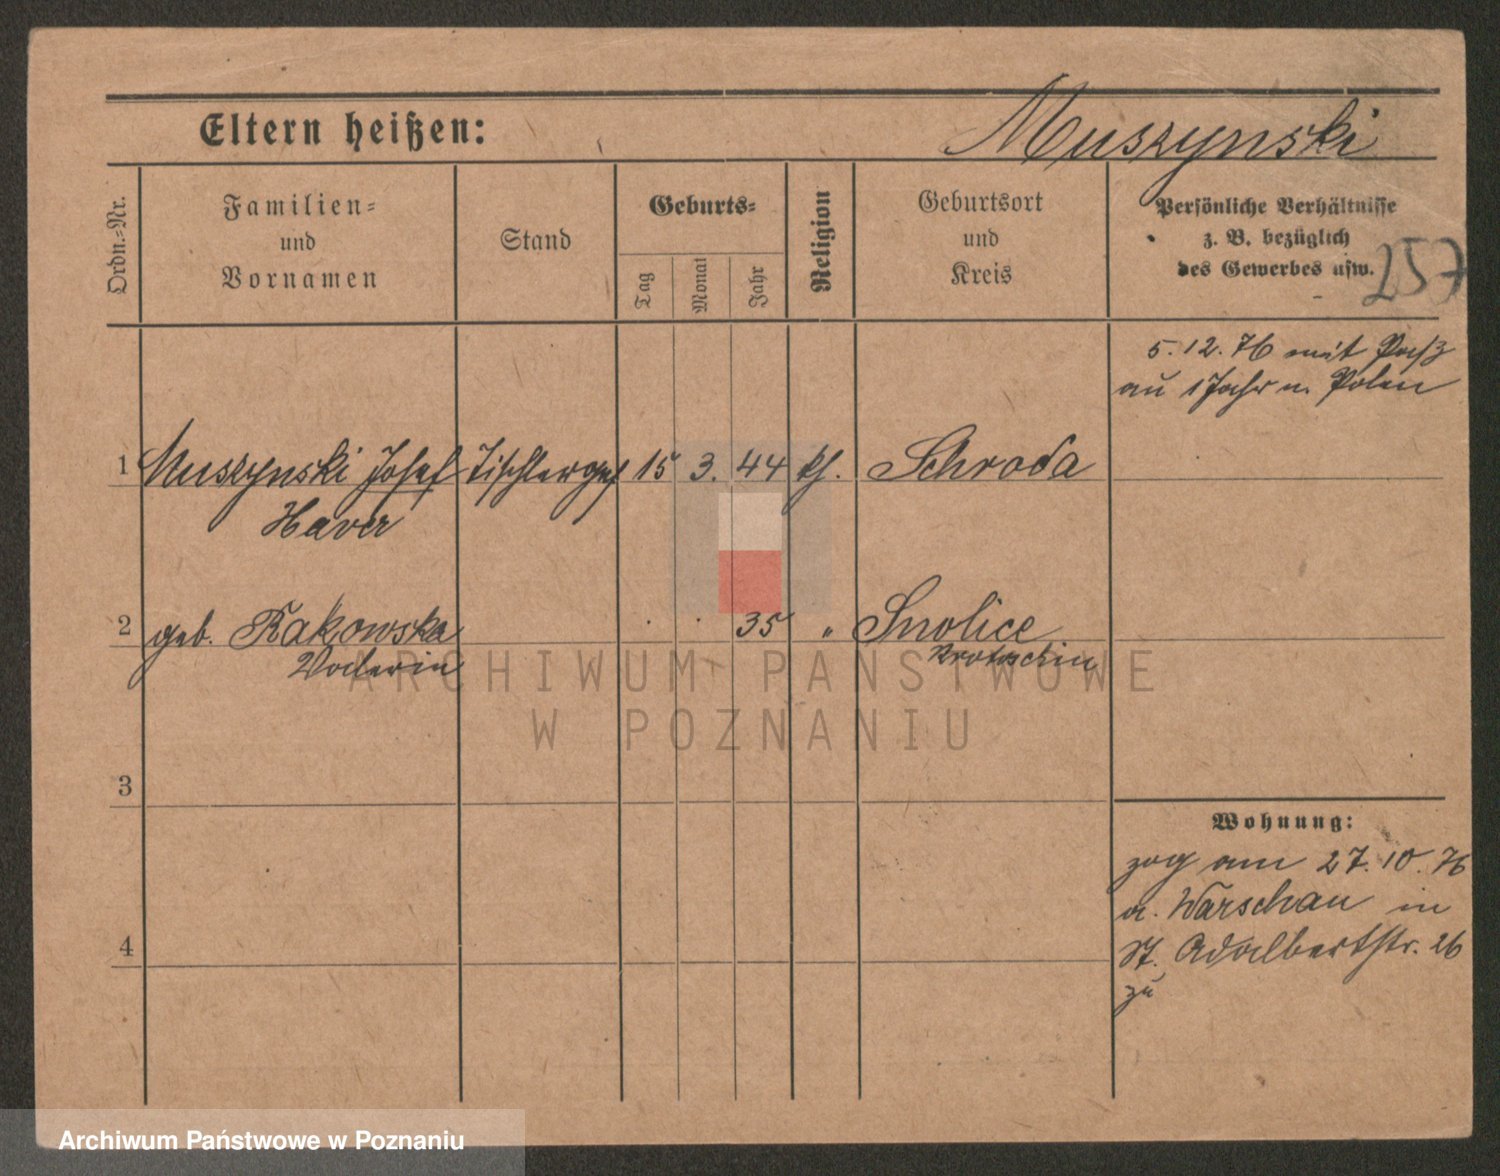 Eltern heißen:
Muszynski
Ordn.-Nr.
Familien-
und
Vornamen
Stand
Geburts-
Tag
Monat
Jahr
Religion
Geburtsort
und
Kreis
Persönliche Verhältnisse
z. B. bezüglich
des Gewerbes usw.
257
5. 12. 76 mit Paß
au 1 Jahr n. Polen
1 Muszynski Josef Tischlerges 15 3. 44 kh. Schroda
Xaver
2 geb. Rakowska . . 35 " Smolice
Krotoschin
3
4
Wohnung:
zog am 27. 10. 76
a. Warschau in
St. Adalbertstr. 26
zu
ARCHIWUM PAŃSTWOWE
W POZNANIU
Archiwum Państwowe w Poznaniu